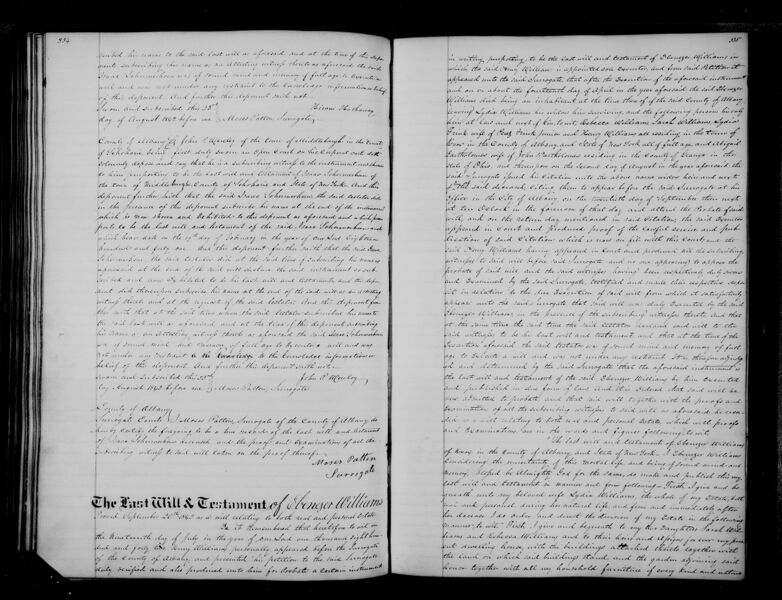 334
scribed his name to the said last will as aforesaid and at the time of this depo-
nents subscribing his name as an attesting witness thereto as aforesaid the said
Isaac was of sound mind and memory of full age to execute a
will and was not under any restraint to the knowledge information or belief
of this deponent. And further this deponent saith not.
Sworn and subscribed this 23d Hiram
day of August 1842 before me Moses Patten, Surrogate,
County of Albany SS John P. of the town of Middleburgh in the County
of Schoharie being duly sworn in open Court on his and oath
solemnly depose and say that he is a subscribing witness to the instrument
to him purporting to be the last will and testament of Isaac of
the town of Middleburgh County of Schoharie and State of New York. And this
deponent further saith that the said Isaac the said testator did
in the presence of the deponent subscribe his name at the end of the instrument
which is now shown and Exhibited to this deponent as aforesaid and which pur-
ports to be the last will and testament of the said Isaac and
which bears date on the 19th day of February in the year of our Lord Eighteen
hundred and forty one And this deponent further saith that the said Isaac
the said testator did at the said time of subscribing his name as
aforesaid at the end of the said will declare the said instrument so sub-
scribed and now Exhibited to be his last will and testament and the depo-
nent did thereupon subscribe his name at the end of the said will as an attesting
witness thereto and at the request of the said testator. And this deponent fur-
ther saith that at the said time when the said testator subscribed his name to
the said last will as aforesaid and at the time of this deponent subscribing
his name as an attesting witness thereto as aforesaid the said Isaac
was of sound mind and memory of full age to Execute a will and was
not under any restraint to the knowledge to the knowledge information or
belief of this deponent. And further this deponent saith not.
Sworn and subscribed this 23d John P.
day August 1842 before me Moses Patten Surrogate
County of Albany
Surrogate Court SS Moses Patten, Surrogate of the County of Albany do
hereby certify the foregoing to be a true record of the last will and testament
of Isaac deceased and the proofs and Examinations of all the
subscribing witnesses to said will taken on the proof thereof.
Moses Patten
Surrogate
The Last Will & Testament of Ebenezer Williams
Proved September 20th 1842 as a will relating to both real and personal Estate
Be it remembered that heretofore to wit on
the nineteenth day of July in the year of our Lord one thousand Eight hun-
dred and forty two Henry Williams personally appeared before the Surrogate
of the County of Albany and presented his petition to the said Surrogate
duly verified and also produced unto him for Probate a certain instrument
335
in writing purporting to be the last will and testament of Ebenezer Williams in
which the said Henry Williams is appointed sole Executor, and from said Petition it
appeared unto the said Surrogate that after the Execution of the aforesaid instrument
and on or about the fourteenth day of April in the year aforesaid the said Ebenezer
Williams died being an inhabitant at the time thereof of the said County of Albany
leaving Lydia Williams his widow him surviving, and the following persons his only
heirs at law and next of kin to wit, Rebecca Williams Sarah Williams Lydia
Frink wife of Frink Junior and Henry Williams all residing in the town of
in the County of Albany and State of New York all of full age and Abigail
Bartholomew wife of John Bartholomew residing in the County of in the
State of Ohio, and thereupon on the second day of August in the year aforesaid the
said Surrogate issued his citation unto the above named widow heirs and next
of the said deceased, citing them to appear before the said Surrogate at his
Office in the City of Albany on the twentieth day of September then next
at ten O'clock in the forenoon of that day and attend the Probate of said
will, and on the return day mentioned in said Citation, the said Executor
appeared in court and produced proof of the lawful service and pub-
lication of said Citation which is now on file with this Court and the
said Henry Williams having appeared in Court and produced all the subscribing
witnesses to said will before said Surrogate and no one appearing to oppose the
probate of said will and the said witnesses having been respectively duly sworn
and Examined by the said Surrogate, testified and made their respective deposi-
tions in relation to the due Execution of said will from which it satisfactorily
appears unto the said Surrogate that said will was duly Executed by the said
Ebenezer Williams in the presence of the subscribing witnesses thereto and that
at the same time the said testator declared said will to the
said witnesses to be his last will and testament and that at the time of the
Execution aforesaid the said testator was of sound mind and memory of full
age to Execute a will and was not under any restraint. It is therefore adjudg-
ed and determined by the said Surrogate that the aforesaid instrument is
the last will and testament of the said Ebenezer Williams by him Executed
and published in due form of law, and it is ordered that said will be
now admitted to probate and that said will together with the proofs and
Examination of all the subscribing witnesses to said will as aforesaid be recor-
ded as a will relating to both real and personal Estate, which will proofs
and Examinations are in the words and figures following to wit
The last will and testament of Ebenezer Williams
of in the County of Albany and State of New York. I Ebenezer Williams
Considering the uncertainty of this mortal life, and being of sound mind and
memory, blessed be Almighty God for the same, do make and publish this my
last will and testament in manner and form following. First, I give and be-
queath unto my beloved wife Lydia Williams, the whole of my Estate, both
real and personal during her natural life, and from and immediately after
her decease I do order and direct the division of my Estate in the following
manner, to wit First, I give and bequeath to my two daughters Sarah Wil-
liams and Rebecca Williams and to their heirs and assigns forever my pre-
sent dwelling house, with the buildings attached thereto together with
the land on which said buildings stand and the garden adjoining said
house together with all my household furniture of every kind and nature